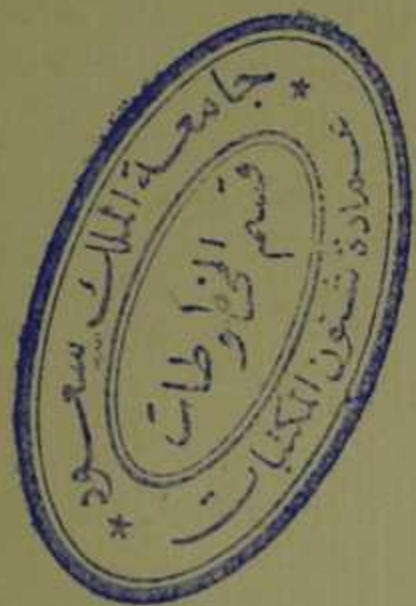 * جامعة الملك سعود *
قسم
المخطوطات
عمادة شئون المكتبات